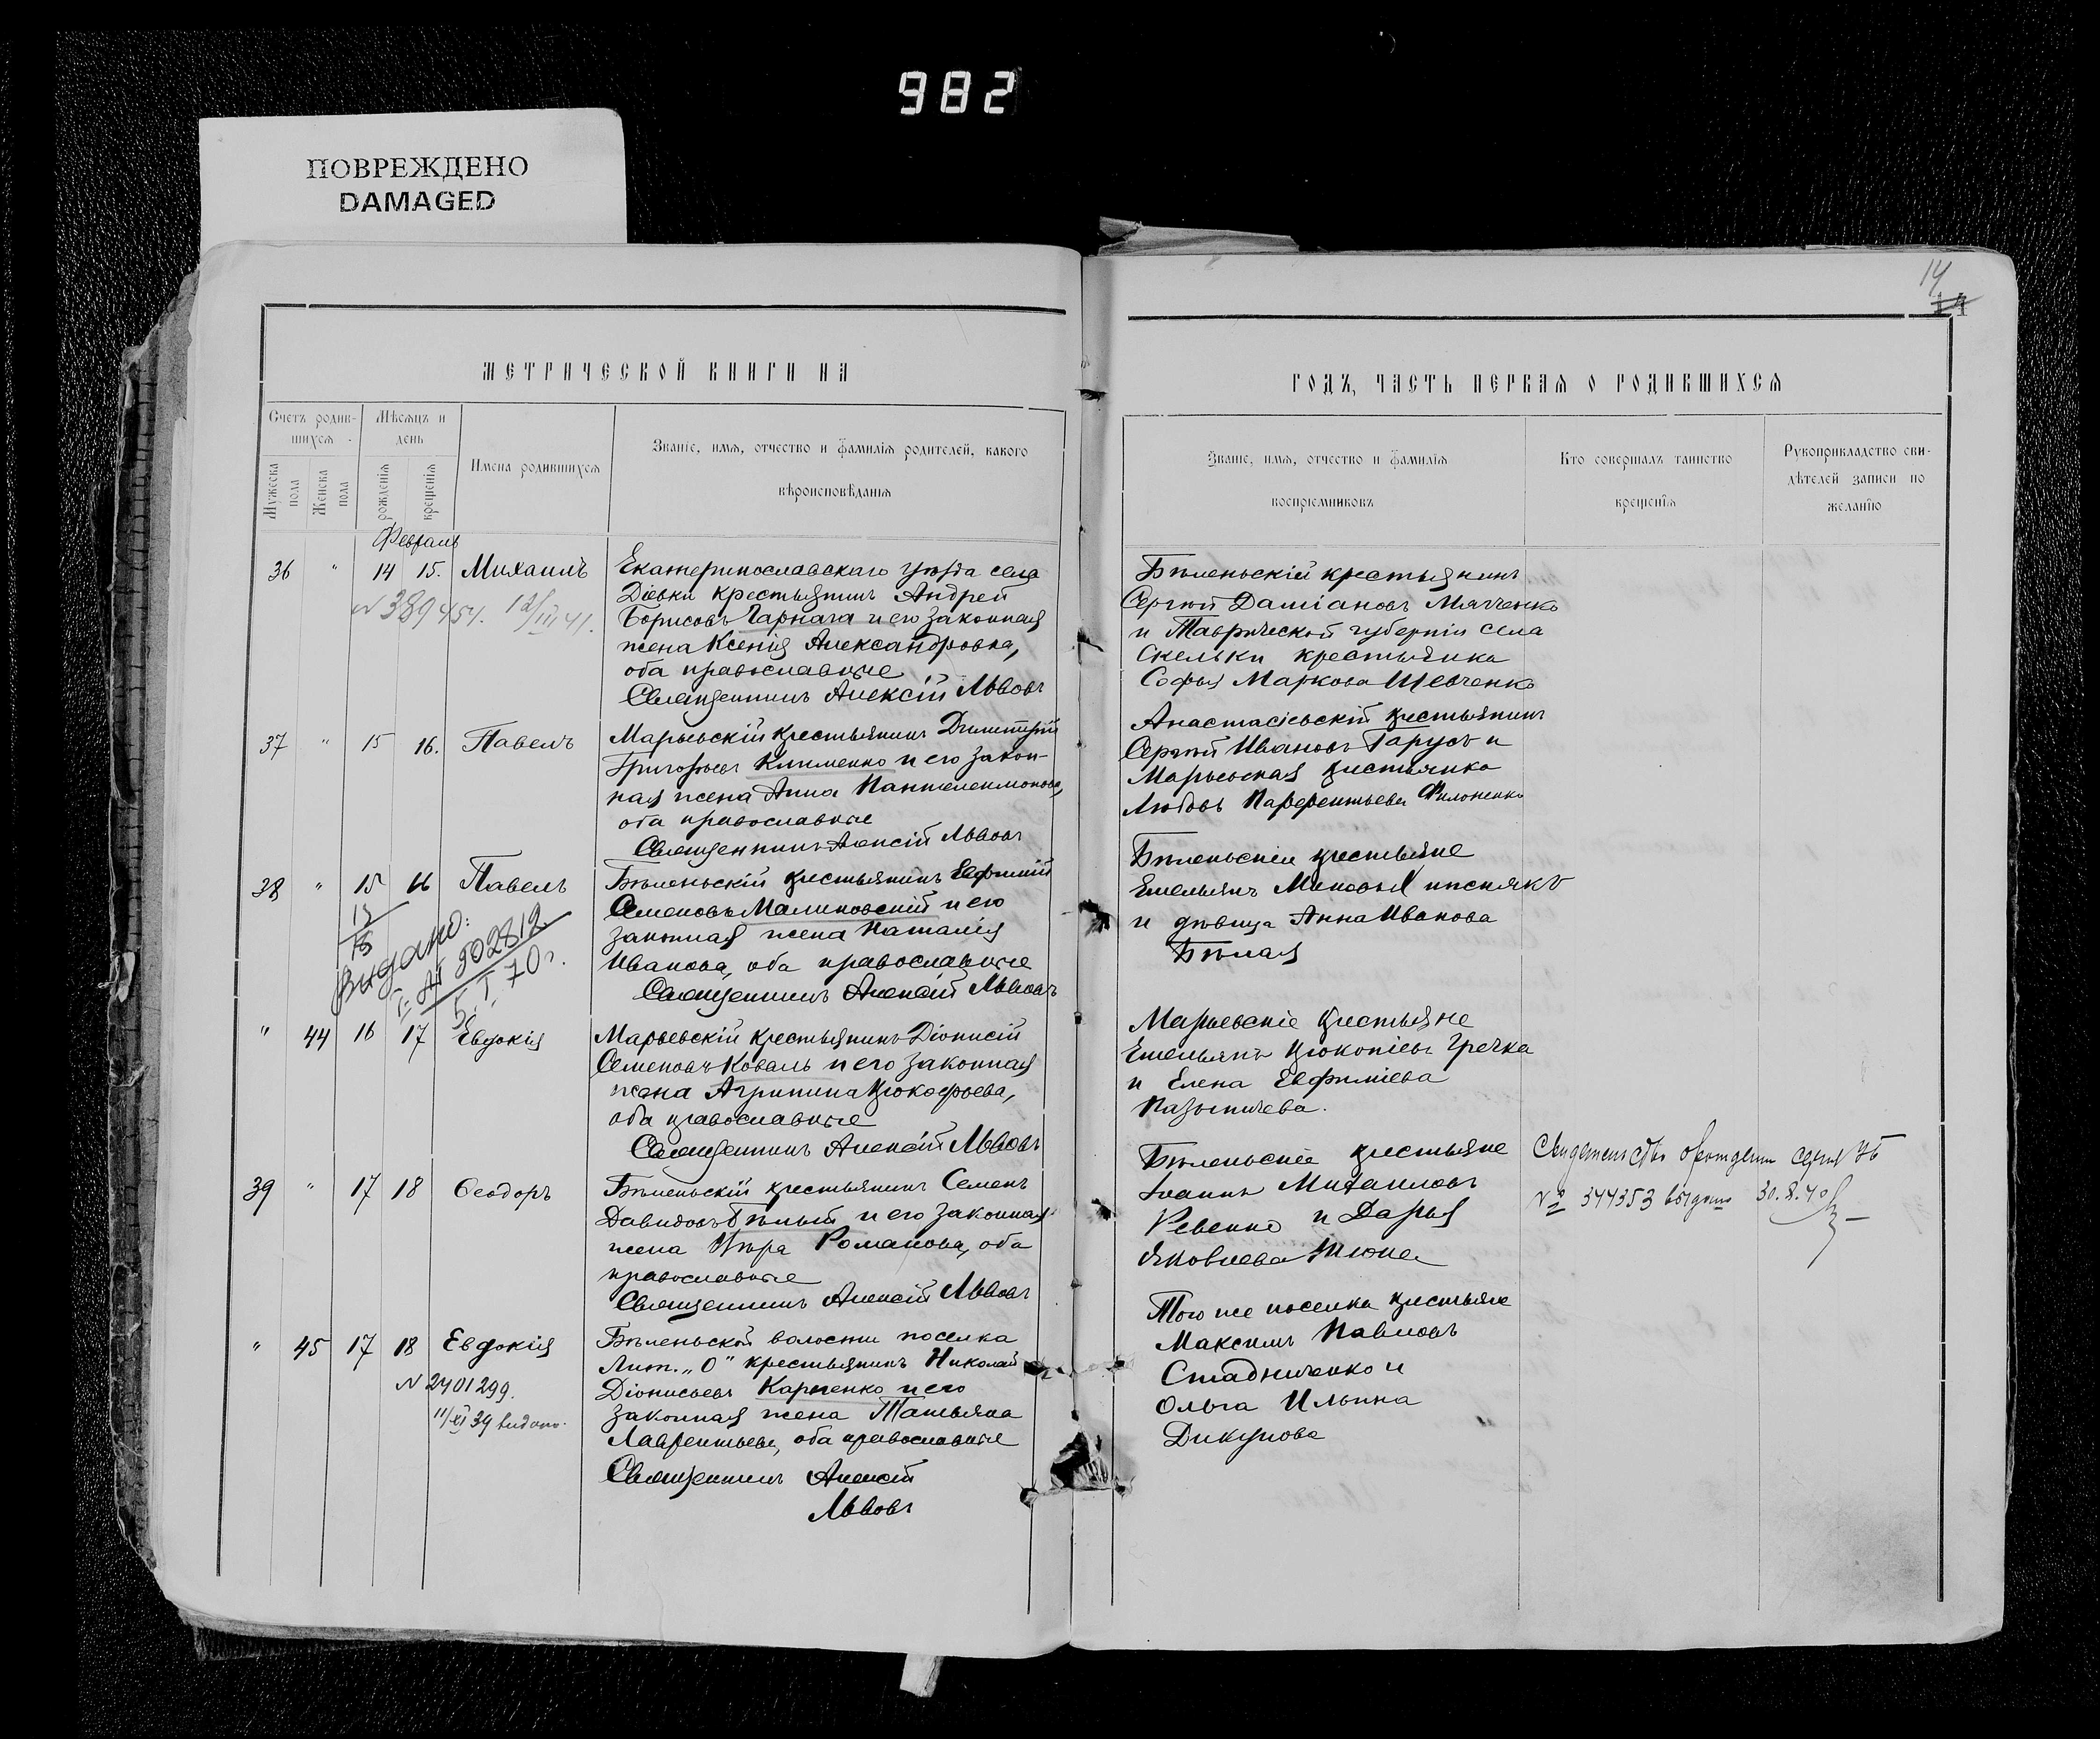 982
ПОВРЕЖДЕНО
DAMAGED
14
МЕТРИЧЕСКОЙ КНИГИ НА
ГОДЪ, ЧАСТЬ ПЕРВАЯ О РОДИВШИХСЯ
Счетъ родив-
шихся
Мѣсяцъ и
день
Мужеска
пола
Женска
пола
рожденія
крещенія
Имена родившихся
Званіе, имя, отчество и фамилія родителей, какого
вѣроисповѣданія
Званіе, имя, отчество и фамилія
воспріемниковъ
Кто совершалъ таинство
крещенія
Рукоприкладство сви-
дѣтелей записи по
желанію
Февраль
36 " 14 15. Михаилъ
N 389454. 12/III 41.
Екатеринославскаго уѣзда села
Діевки крестьянинъ Андрей
Борисовъ Чарната и его законная
жена Ксенія Александровна,
оба православные
Священникъ Алексій Львовъ
Бѣленьскій крестьянинъ
Сергій Даміановъ Мятченко
и Таврической губерніи села
Скельки крестьянка
Софья Маркова Шевченко
37 " 15 16. Павелъ
Марьевскій крестьянинъ Димитрій
Григорьевъ Клименко и его закон-
ная жена Анна Пантелеимонова,
оба православные
Священникъ Алексій Львовъ
Анастасіевскій крестьянинъ
Сергій Ивановъ Гарусъ и
Марьевская крестьянка
Любовь Парфентьева Филоненко
38 " 15 16 Павелъ
15
Видано:
902812
5.I.70 г.
Бѣленьскій крестьянинъ Евфимій
Семеновъ Малиновскій и его
законная жена Наталія
Иванова, оба православные
Священникъ Алексій Львовъ
Бѣленьскіе крестьяне
Емельянъ
и дѣвица Анна Иванова
Бѣлая
" 44 16 17 Евдокія
Марьевскій крестьянинъ Діонисій
Семеновъ Коваль и его законная
жена Агрипина Прокофьева,
оба православные
Священникъ Алексій Львовъ
Марьевскіе крестьяне
Емельянъ Прокопіевъ Гречка
и Елена Евфиміева
39 " 17 18 Ѳеодоръ
Бѣленьскій крестьянинъ Семенъ
Давидовъ Бѣлый и его законная
жена Вѣра Романова, оба
православные
Священникъ Алексій Львовъ
Бѣленьскіе крестьяне
Іоаннъ Михаиловъ
Ревенко и Дарья
Яковлева
Свидетельство о рождении серия
№ 344353 выдано 30.8.40
" 45 17 18 Евдокія
N 2401299.
11/XI 39 видано.
Бѣленьской волости поселка
Лит. „О" крестьянинъ Николай
Діонисьевъ Карпенко и его
законная жена Татьяна
Лаврентьева, оба православные
Священникъ Алексій
Львовъ
Того же поселка крестьяне
Максимъ Павловъ
Стадниченко и
Ольга Ильина
Дикунова